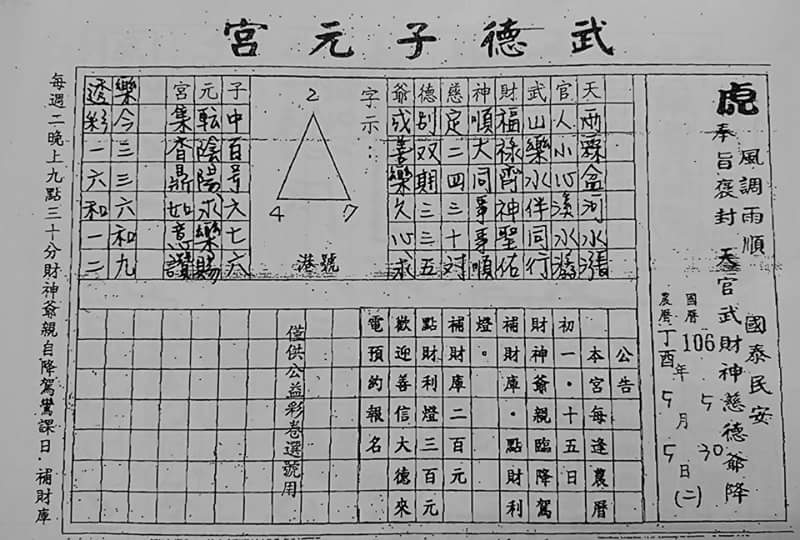 武德子元宮
國泰民安
風調雨順
虎
奉旨褒封 天官武財神慈德爺降
國曆 106年 5月 30日(二)
農曆 丁酉 5月 5日
天雨霖盒河水漲
官人小心溪水潺
武山樂水伴同行
財福祿齊神聖佑
神順大同事事順
慈定二四三十対
德刮双期三三五
爺戍善樂久心求
字示：
2
4 7
港號
子中百号六七六
元転陰陽求樂賜
宮集鼎如意讚
樂今三三六和九
透彩二六和一二
公告
本宮每逢農曆
初一．十五日
財神爺親臨降駕
補財庫．點財利
燈。
補財庫二百元
點財利燈三百元
歡迎善信大德來
電預約報名
僅供公益彩卷選號用
每週二晚上九點三十分財神爺親自降駕鸞課日．補財庫